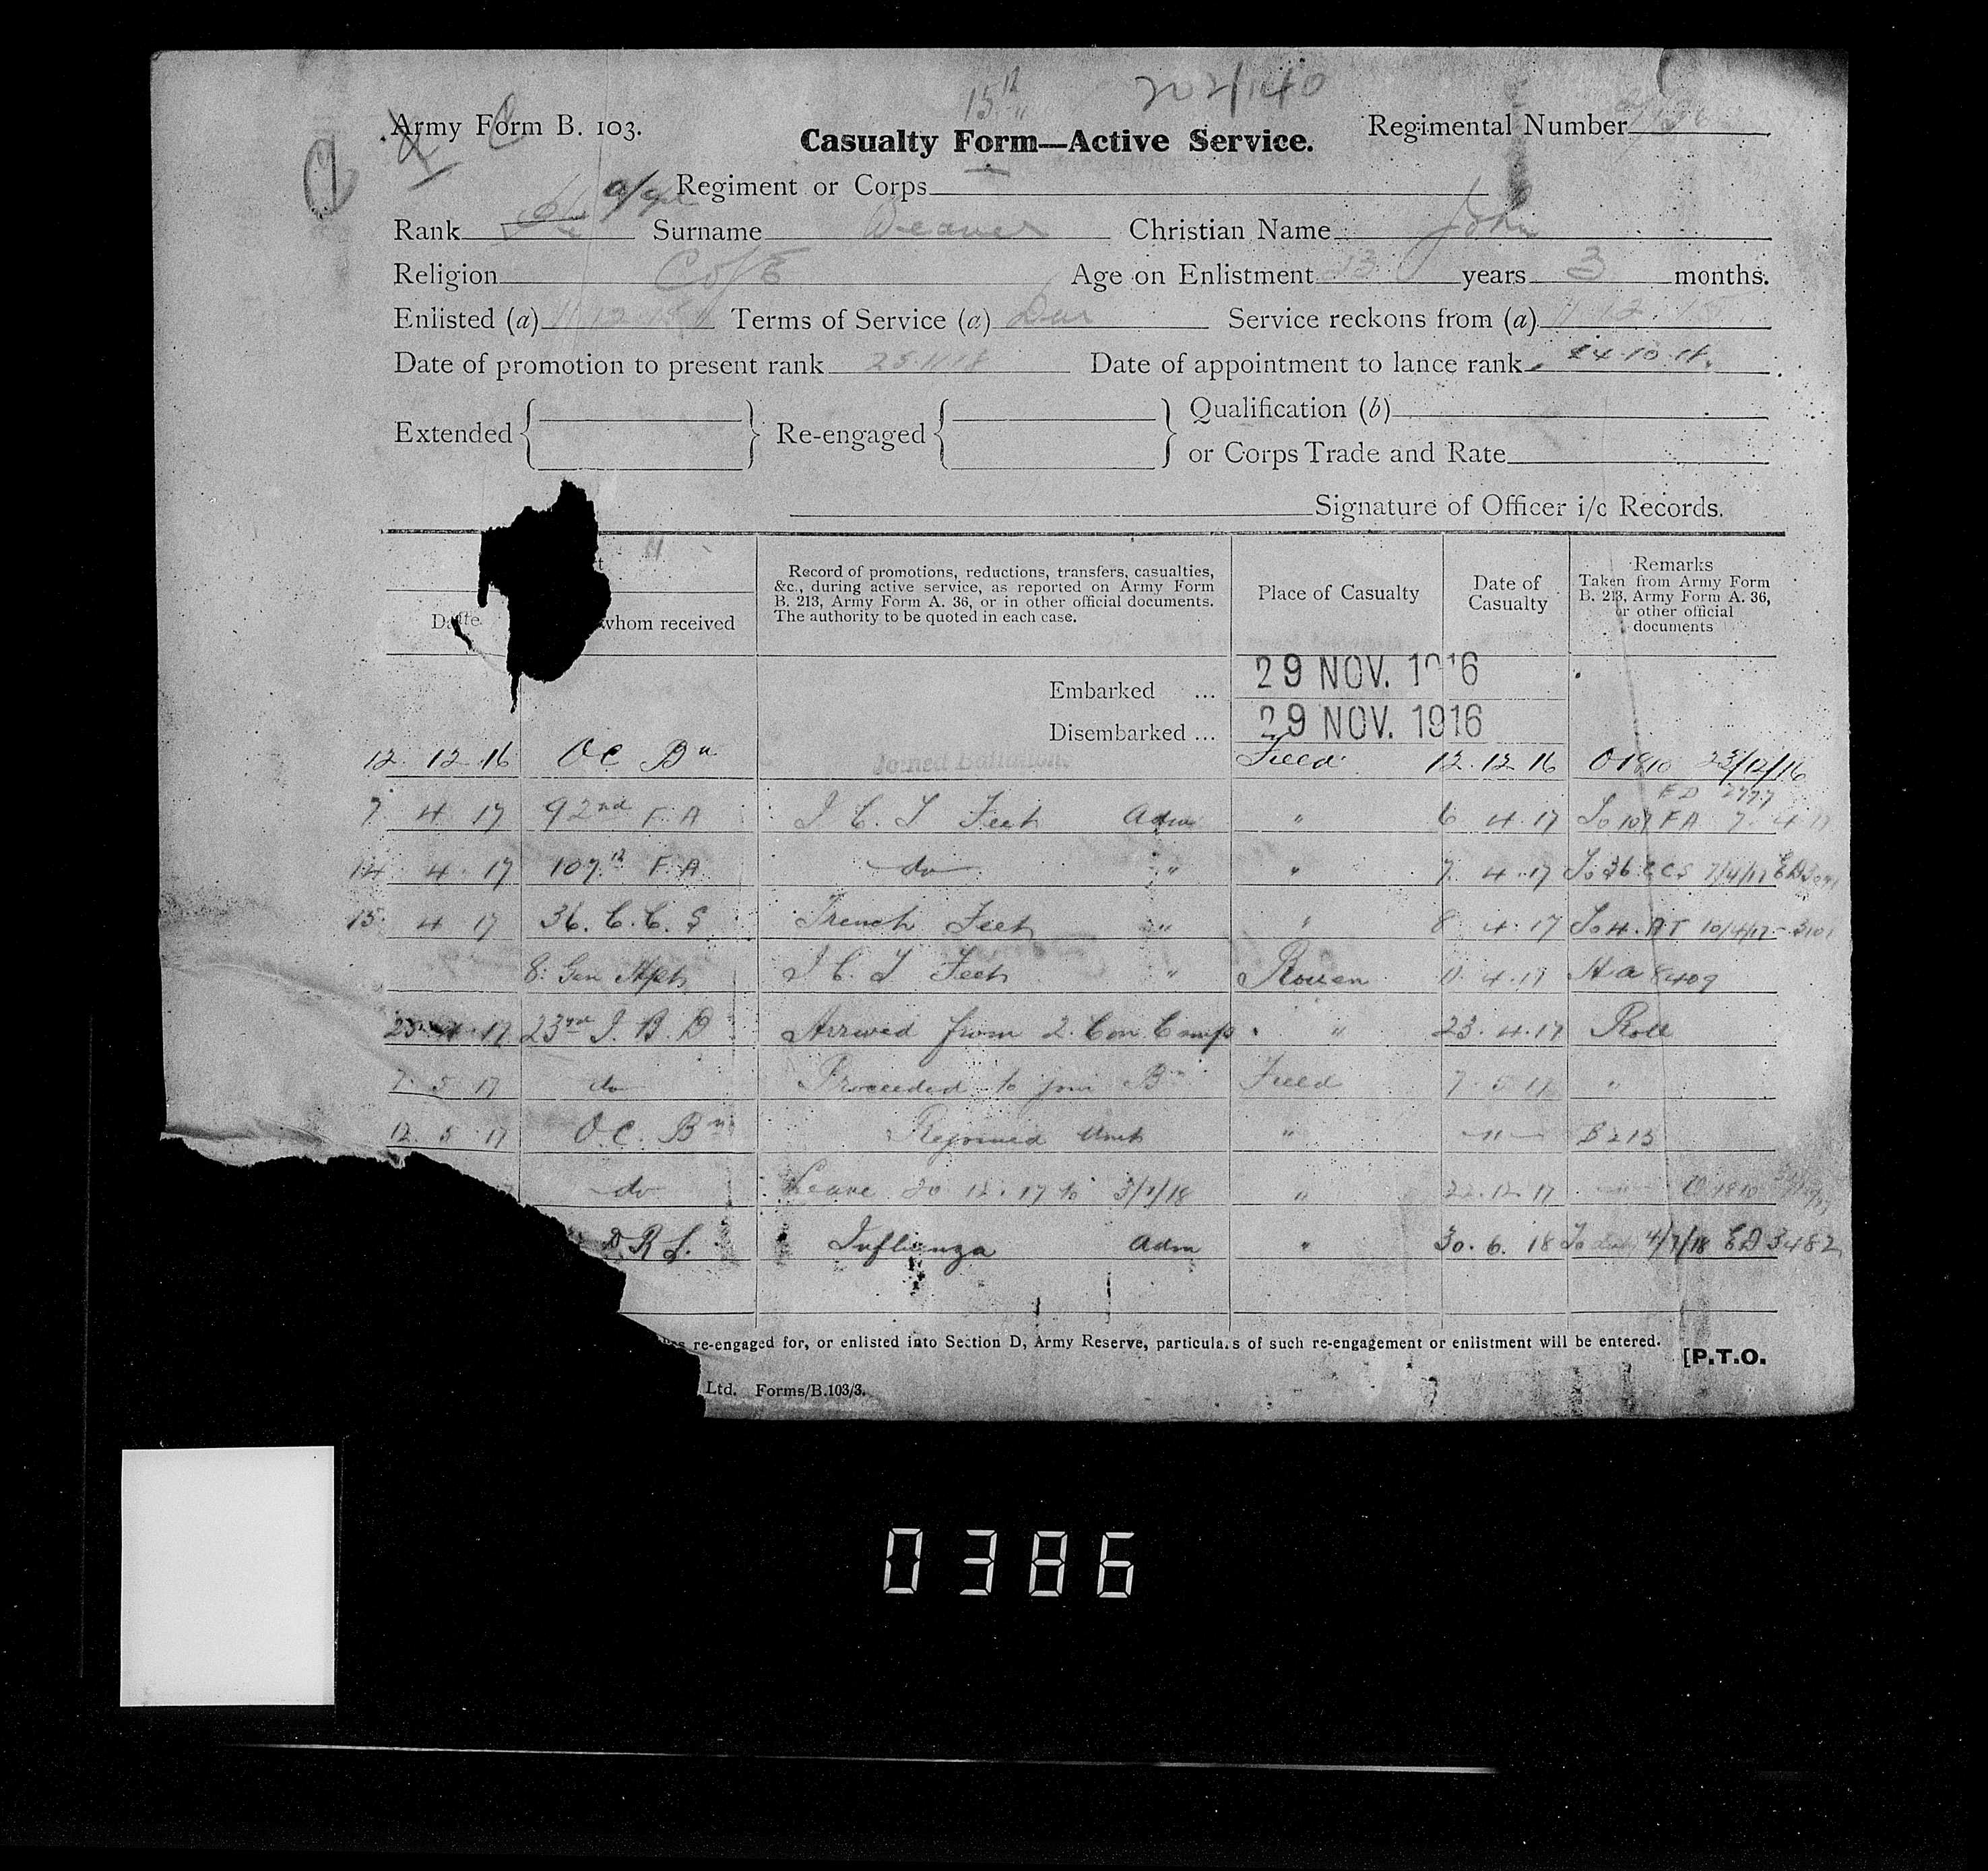 15th
202/1140
Army Form B. 103.
Casualty Form—Active Service.
Regimental Number
Regiment or Corps
Rank Surname Christian Name John
Religion C of E Age on Enlistment years 3 months.
Enlisted (a) 11 12 15 Terms of Service (a) Dur Service reckons from (a) 11 12 15
Date of promotion to present rank 25.11.18 Date of appointment to lance rank
Extended Re-engaged Qualification (b)
or Corps Trade and Rate
Signature of Officer i/c Records.
Date whom received
Record of promotions, reductions, transfers, casualties, &c., during active service, as reported on Army Form B. 213, Army Form A. 36, or in other official documents. The authority to be quoted in each case.
Place of Casualty
Date of Casualty
Remarks
Taken from Army Form B. 213, Army Form A. 36, or other official documents
Embarked ... 29 NOV. 1916
Disembarked ... 29 NOV. 1916
12. 12. 16 OC Bn Joined Battalion Field 12. 12 16 O1810 23/12/16
7 4 17 92nd F. A I C. T Feet Adm " 6 4.17 To 107 FA 7. 4 17 ED 2777
14 4. 17 107th F. A. do " " 7 4.17 To 36 CCS 7/4/17
15 4 17 36. C. C. S Trench Feet " " 8 4.17 To 4. AT 10/4/17 3101
8. Gen Hpt I C. T Feet " Rouen 4.17 8409
23. 4. 17 23rd I. B. D Arrived from 2. Con Camp " 23. 4.17 Roll
7. 5 17 do Proceeded to join Bn Field 7 5 17 "
12. 5 17 O. C. Bn Rejoined Unit " " B 213
do Leave 20 12. 17 to 3/1/18 " 22.12.17 O 1810
D. R S. Influenza Adm " 30. 6. 18 To duty 4/7/18 ED 3482
re-engaged for, or enlisted into Section D, Army Reserve, particulars of such re-engagement or enlistment will be entered.
[P.T.O.
Ltd. Forms/B.103/3.
0386